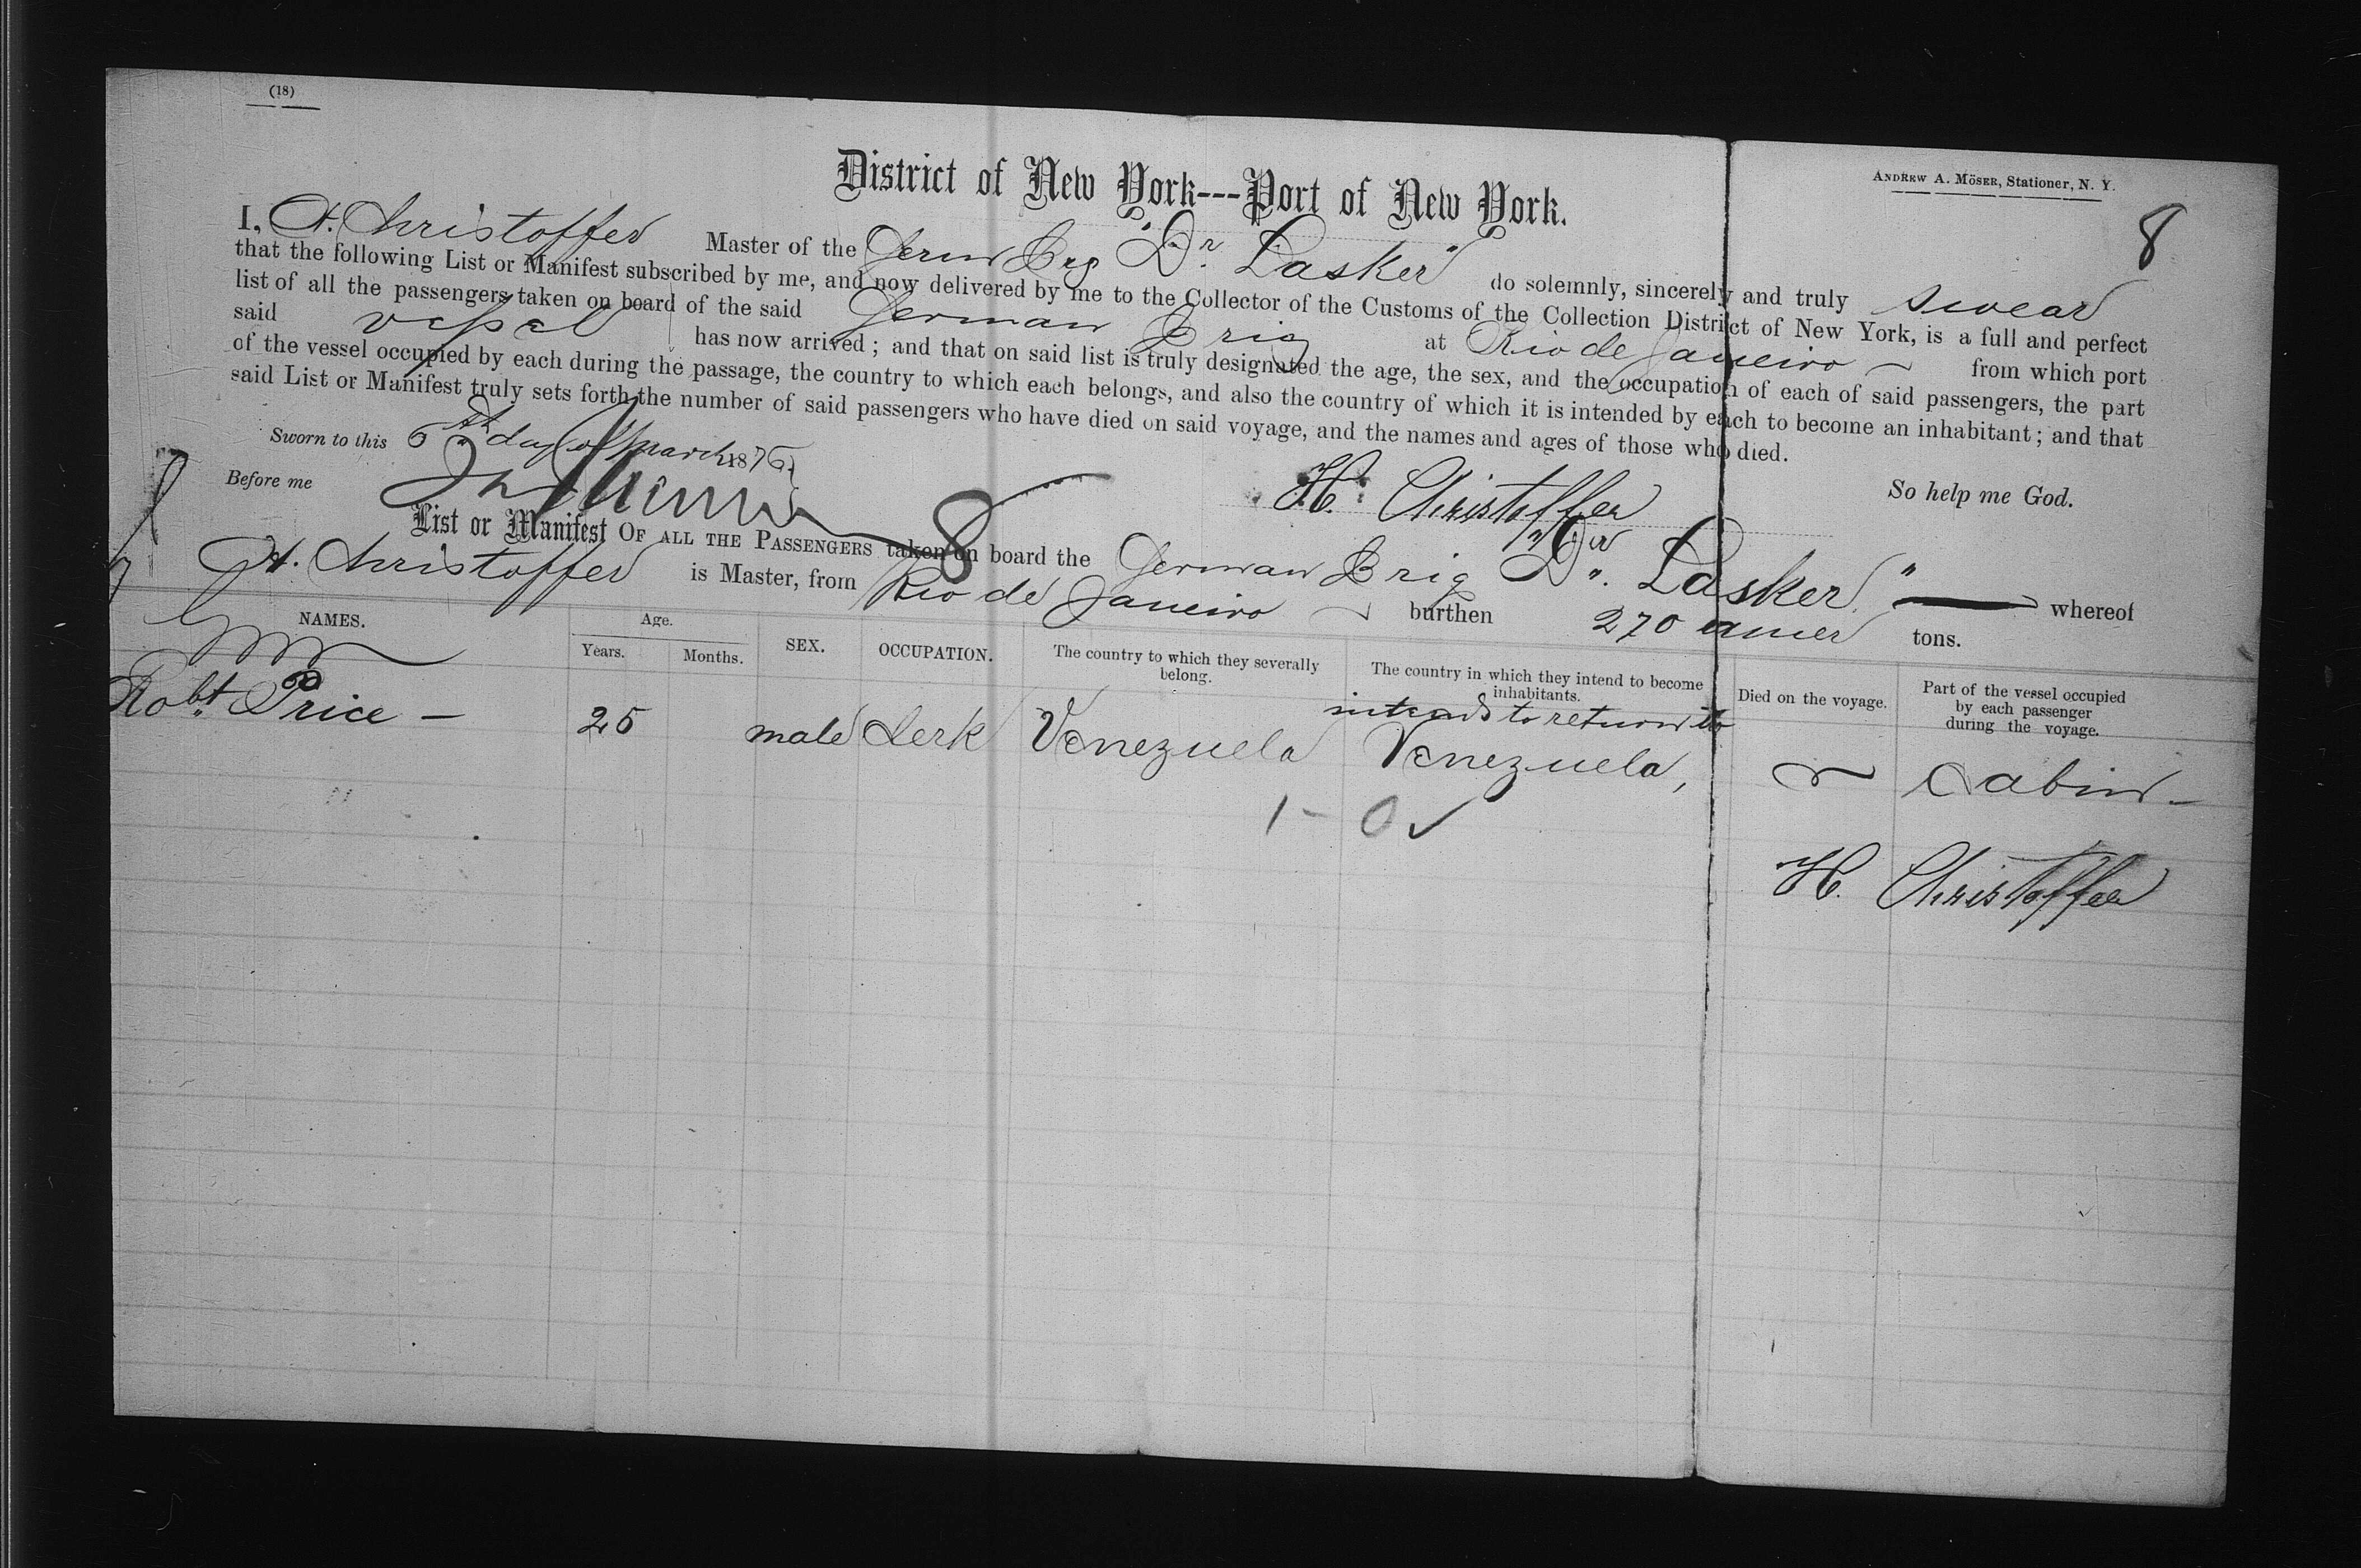 (18)
ANDREW A. MÖSER, Stationer, N. Y.
8
District of New York---Port of New York.
I, H. Christoffer Master of the Germ Brg "Dr. Lasker" do solemnly, sincerely and truly swear
that the following List or Manifest subscribed by me, and now delivered by me to the Collector of the Customs of the Collection District of New York, is a full and perfect
list of all the passengers taken on board of the said German Brig at Rio de Janeiro from which port
said vessel has now arrived; and that on said list is truly designated the age, the sex, and the occupation of each of said passengers, the part
of the vessel occupied by each during the passage, the country to which each belongs, and also the country of which it is intended by each to become an inhabitant; and that
said List or Manifest truly sets forth the number of said passengers who have died on said voyage, and the names and ages of those who died.
Sworn to this 6th day of March 1876
So help me God.
Before me
H. Christoffer
List or Manifest OF ALL THE PASSENGERS taken on board the German Brig "Dr. Lasker" whereof
8
H. Christoffer is Master, from Rio de Janeiro burthen 270 amer tons.
NAMES. Age. Years. Months. SEX. OCCUPATION. The country to which they severally belong. The country in which they intend to become inhabitants. Died on the voyage. Part of the vessel occupied by each passenger during the voyage.
intends to return to
Robt. Price - 25 male Clerk Venezuela Venezuela, Cabin -
1 - 0 ✓
H. Christoffer